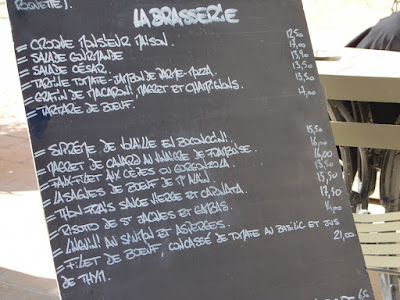 ROQUETTE).
LA BRASSERIE
= CROQUE MONSIEUR MAISON. 12,50
= SALADE GOURMANDE 17,00
= SALADE CÉSAR. 13,90
= TARTINE TOMATE-JAMBON DE PARME-MOZZA. 13,50
= GRATIN DE MACARONI MAGRET ET CHAMPIGNONS. 13,50
= TARTARE DE BOEUF. 17,00
= SUPRÊME DE VOLAILLE EN BROCHE. 15,50
= MAGRET DE CANARD AU VINAIGRE DE FRAMBOISE. 16,00
= FAUX-FILET AUX CÈPES OU GORGONZOLA. 16,00
= LASAGNES DE BOEUF DE MAMAN. 13,50
= THON FRAIS SAUCE VIERGE ET CAPONATA. 15,50
= RISOTTO DE ST JACQUES ET GAMBAS. 17,50
= LINGUINI AU SAUMON ET ASPERGES. 14,50
= FILET DE BOEUF, CONCASSÉ DE TOMATE AU BASILIC ET JUS DE THYM. 21,00